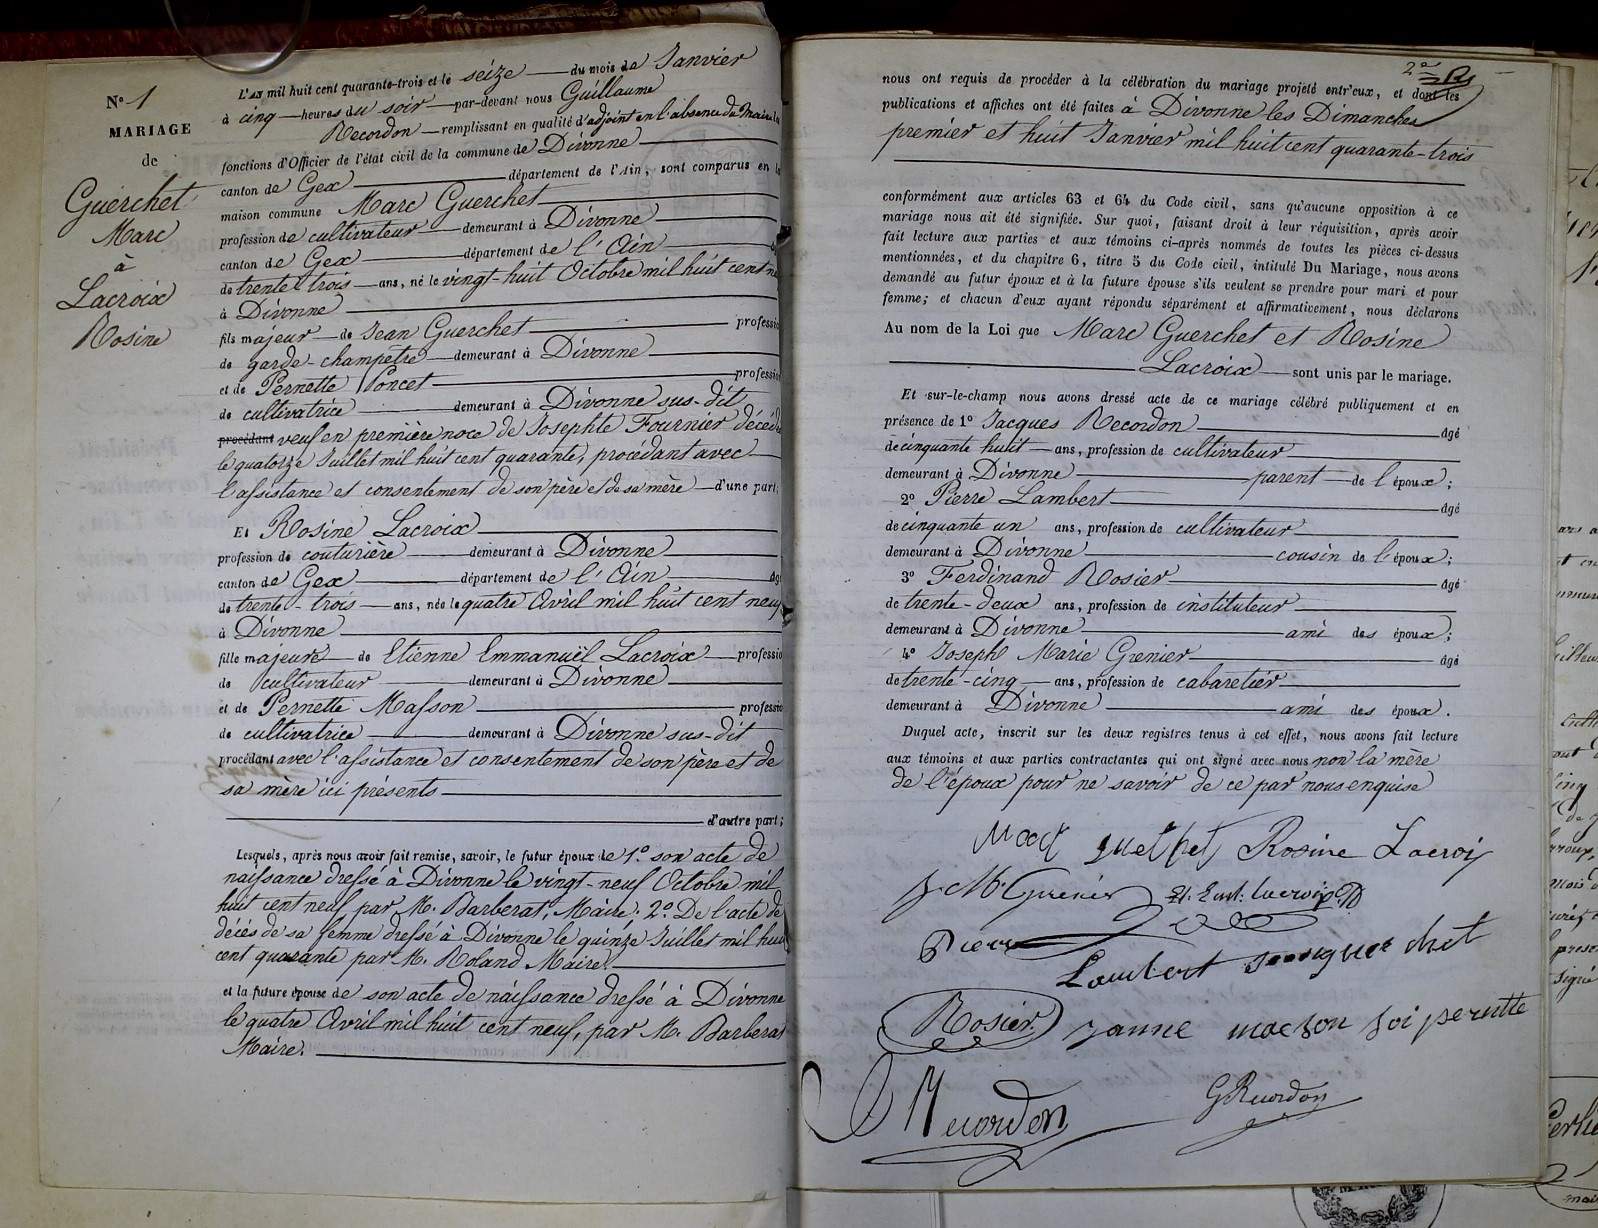 N° 1
MARIAGE
de
Guerchet
Marc
à
Lacroix
Rosine
L'AN mil huit cent quarante-trois et le seize du mois de Janvier
à cinq heures du soir par-devant nous Guillaume
Recordon remplissant en qualité d'adjoint en l'absence du Maire les
fonctions d'Officier de l'état civil de la commune de Divonne
canton de Gex département de l'Ain, sont comparus en la
maison commune Marc Guerchet
profession de cultivateur demeurant à Divonne
canton de Gex département de l'Ain âgé
de trente trois ans, né le vingt-huit Octobre mil huit cent ne
à Divonne
fils majeur de Jean Guerchet professio
de garde-champêtre demeurant à Divonne
et de Pernette Poncet professio
de cultivatrice demeurant à Divonne sus-dit
procédant veuf en première noce de Josephte Fournier décédé
le quatorze Juillet mil huit cent quarante, procédant avec
l'assistance et consentement de son père et de sa mère d'une part,
Et Rosine Lacroix
profession de couturière demeurant à Divonne
canton de Gex département de l'Ain âgé
de trente-trois ans, née le quatre Avril mil huit cent neuf
à Divonne
fille majeure de Etienne Emmanuël Lacroix professio
de cultivateur demeurant à Divonne
et de Pernette Masson professio
de cultivatrice demeurant à Divonne sus-dit
procédant avec l'assistance et consentement de son père et de
sa mère ici présents
d'autre part;
Lesquels, après nous avoir fait remise, savoir, le futur époux de 1° son acte de
naissance dressé à Divonne le vingt-neuf Octobre mil
huit cent neuf par M. Barberat, Maire; 2° De l'acte de
décès de sa femme dressé à Divonne le quinze Juillet mil huit
cent quarante par M. Roland Maire.
et la future épouse de son acte de naissance dressé à Divonne
le quatre Avril mil huit cent neuf, par M. Barberat
Maire.
2e
nous ont requis de procéder à la célébration du mariage projeté entr'eux, et dont les
publications et affiches ont été faites à Divonne les Dimanches
premier et huit Janvier mil huit cent quarante-trois
conformément aux articles 63 et 64 du Code civil, sans qu'aucune opposition à ce
mariage nous ait été signifiée. Sur quoi, faisant droit à leur réquisition, après avoir
fait lecture aux parties et aux témoins ci-après nommés de toutes les pièces ci-dessus
mentionnées, et du chapitre 6, titre 5 du Code civil, intitulé Du Mariage, nous avons
demandé au futur époux et à la future épouse s'ils veulent se prendre pour mari et pour
femme; et chacun d'eux ayant répondu séparément et affirmativement, nous déclarons
Au nom de la Loi que Marc Guerchet et Rosine
Lacroix sont unis par le mariage.
Et sur-le-champ nous avons dressé acte de ce mariage célébré publiquement et en
présence de 1° Jacques Recordon âgé
de cinquante huit ans, profession de cultivateur
demeurant à Divonne parent de l'époux;
2° Pierre Lambert âgé
de cinquante un ans, profession de cultivateur
demeurant à Divonne cousin de l'époux;
3° Ferdinand Rosier âgé
de trente-deux ans, profession de instituteur
demeurant à Divonne ami des époux;
4° Joseph Marie Grenier âgé
de trente-cinq ans, profession de cabaretier
demeurant à Divonne ami des époux.
Duquel acte, inscrit sur les deux registres tenus à cet effet, nous avons fait lecture
aux témoins et aux parties contractantes qui ont signé avec nous non la mère
de l'époux pour ne savoir de ce par nous enquise
Marc Guerchet Rosine Lacroix
J M Grenier Et. Em.l: lacroix
Pierre
Lambert jean guerchet
Rosier janne macson foi pernette
Recordon GRecordon